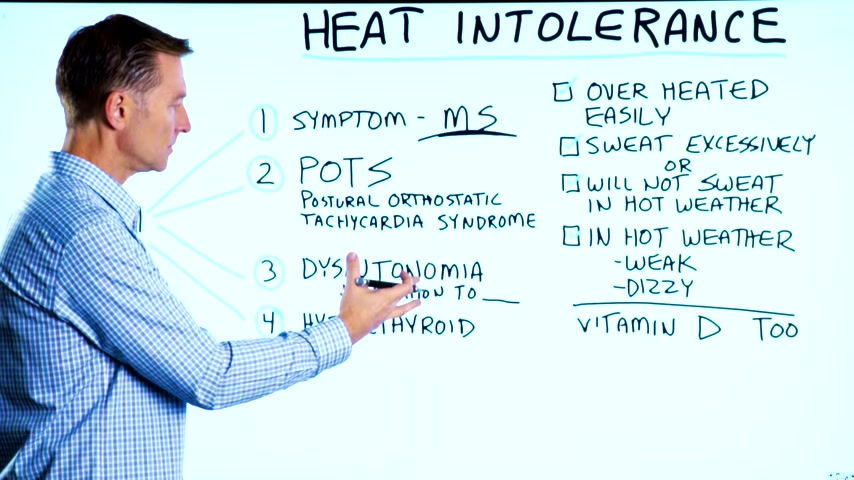 HEAT INTOLERANCE
1 SYMPTOM - MS
2 POTS
POSTURAL ORTHOSTATIC
TACHYCARDIA SYNDROME
3
TO ___
4
☐ OVER HEATED
EASILY
☐ SWEAT EXCESSIVELY
OR
☐ WILL NOT SWEAT
IN HOT WEATHER
☐ IN HOT WEATHER
-WEAK
-DIZZY
VITAMIN D TOO